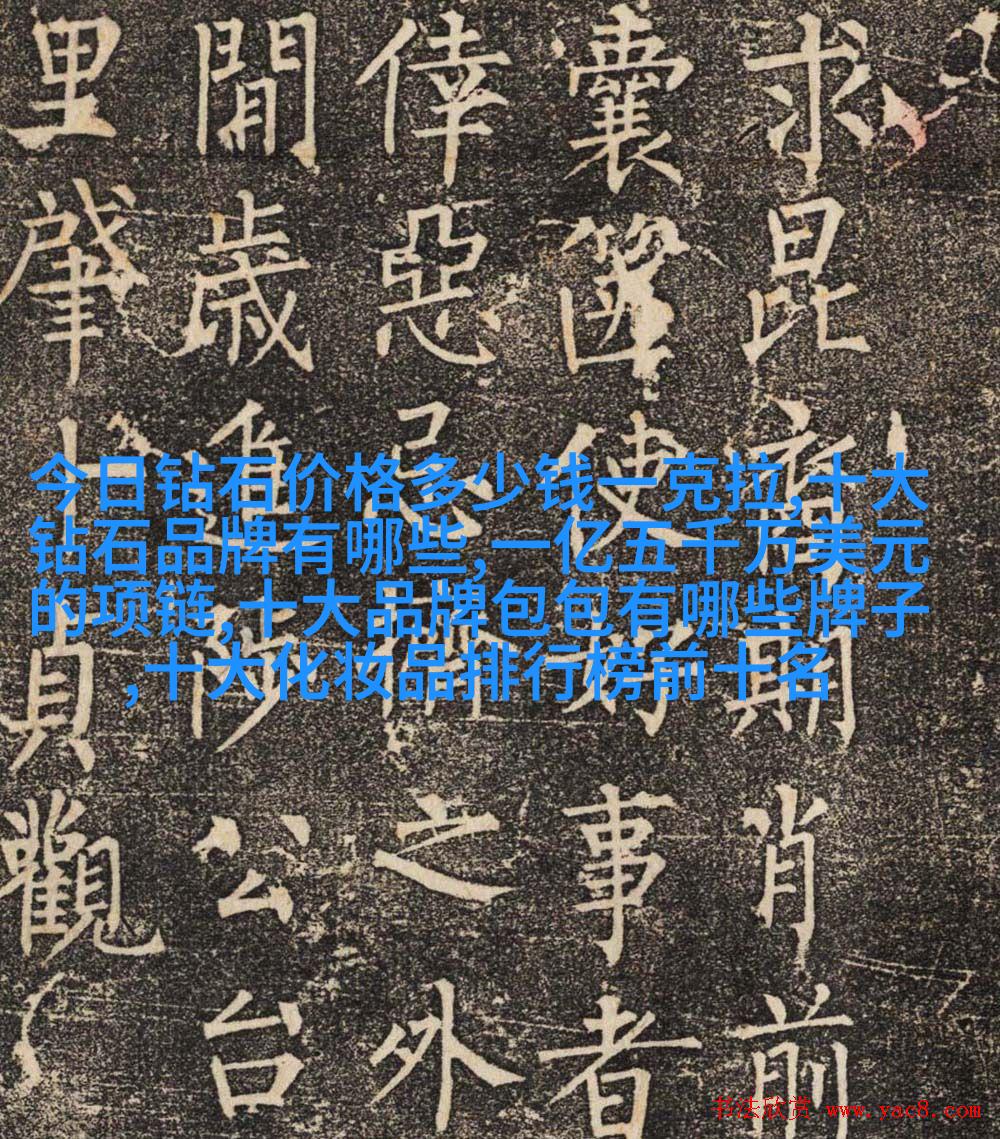 今日钻石价格多少钱一克拉,十大
钻石品牌有哪些,一亿五千万美元
的项链,十大品牌包包有哪些牌子
,十大化妆品排行榜前十名
求昆期肖前
囊篋使好事者
倖惡忌之外
閒歲公台
里肇十貞觀
书法欣赏 www.yac8.com